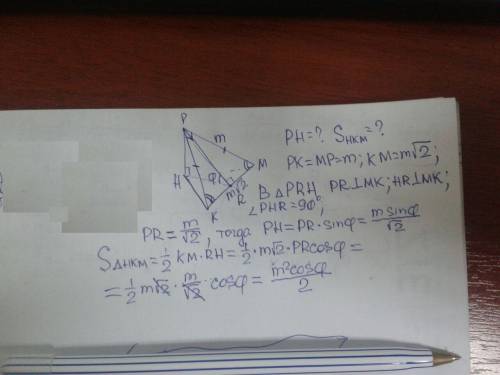 P
m
H
φ
M
m√2
R
K
PH=? S_HKM=?
PK=MP=m; KM=m√2;
В △PRH PR⊥MK; HR⊥MK;
∠PHR=90°;
PR=m/√2, тогда PH=PR·sinφ=m sinφ/√2
S_△HKM=1/2 KM·RH=1/2·m√2·PRcosφ=
=1/2 m√2·m/√2·cosφ=m²cosφ/2